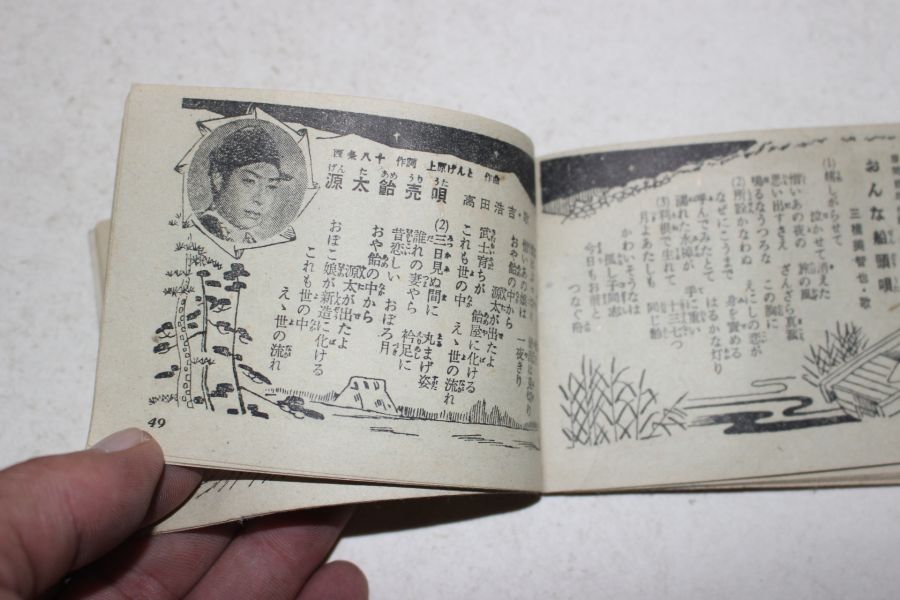 おんな船頭唄
三橋美智也・歌
(1)嬉しがらせて 泣かせて消えた
憎いあの夜の 旅の風
思い出すさえ ざんざら真菰
鳴るなうつろな この胸に
(2)所詮かなわぬ えにしの恋が
なぜにこうまで 身を責める
呼んでみたとて はるかな灯り
濡れた水棹が 手に重い
(3)利根で生れて 十三七つ
月よあたしも 同じ
かわいそうなは 孤し子同志
今日もお月と つなぐ舟
西条八十 作詞 上原げんと 作曲
源太飴売唄
高田浩吉・歌
一夜きり
おや飴の中から 源太が出たよ
武士育ちが 飴屋に化ける
これも世の中 えゝ世の流れ
(2)三日見ぬ間に 丸まげ姿
誰れの妻やら 衿足に
昔恋しい おぼろ月
おや飴の中から 源太が出たよ
おぼこ娘が新造に化ける
これも世の中 えゝ世の流れ
49